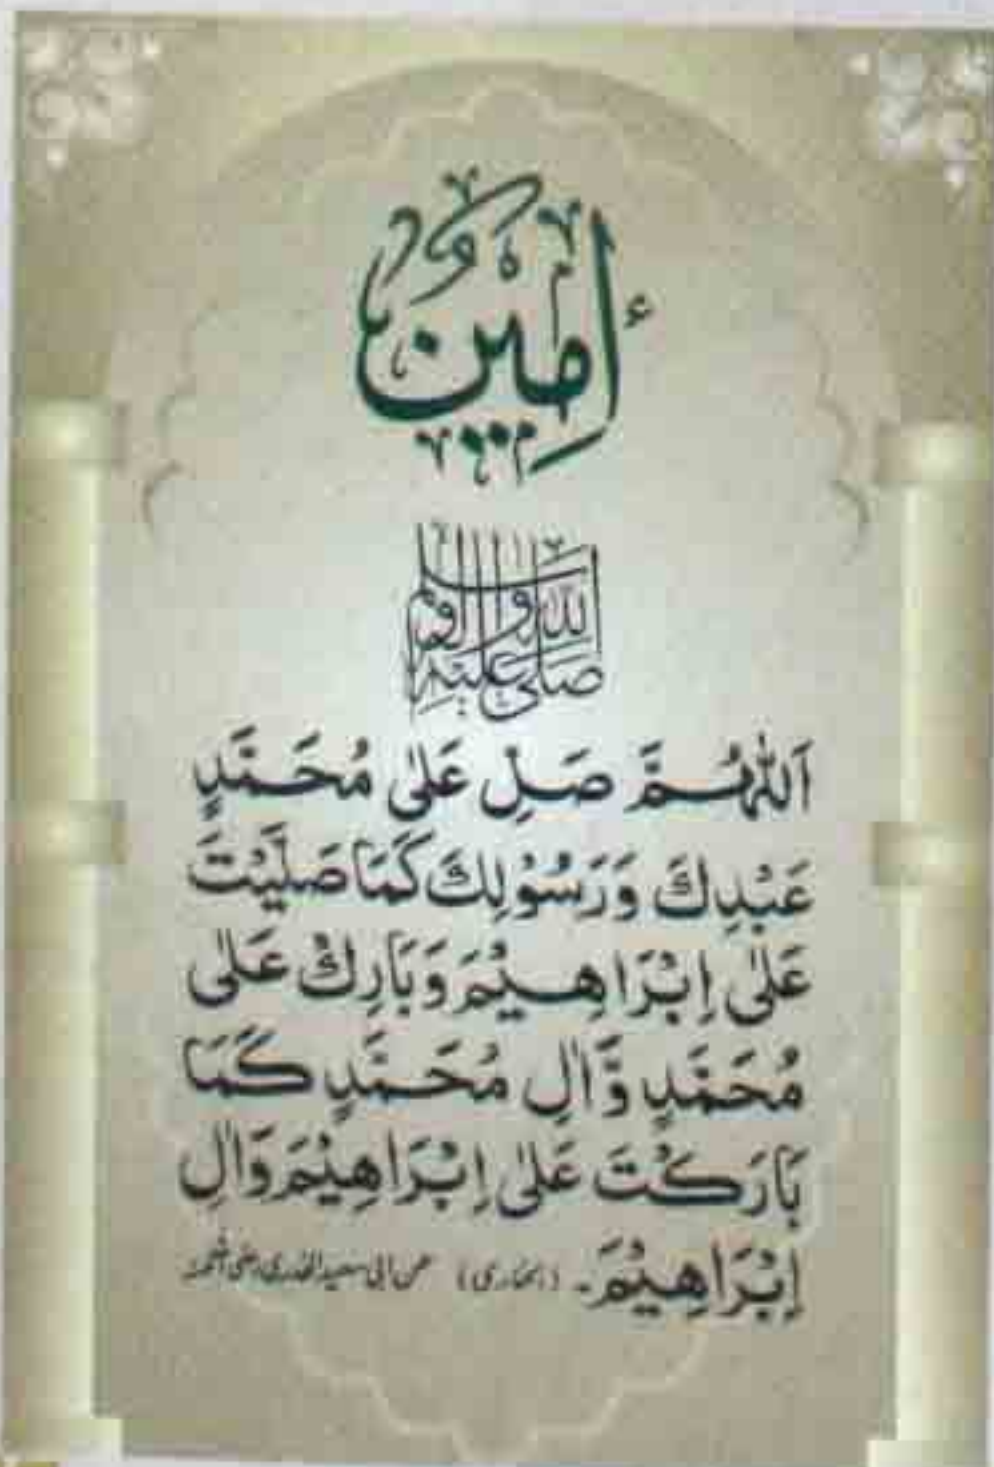 أمِين
صَلَّى اللهُ عَلَيْهِ وَآلِهِ وَسَلَّم
اَللّٰهُمَّ صَلِّ عَلٰى مُحَمَّدٍ
عَبْدِكَ وَرَسُوْلِكَ كَمَا صَلَّيْتَ
عَلٰى اِبْرَاهِيْمَ وَبَارِكْ عَلٰى
مُحَمَّدٍ وَّاٰلِ مُحَمَّدٍ كَمَا
بَارَكْتَ عَلٰى اِبْرَاهِيْمَ وَاٰلِ
اِبْرَاهِيْمَ۔ (بخاری) عن ابی سعید الخدری رضی اللہ عنہ